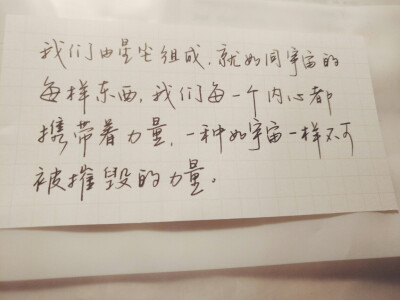 我们由星尘组成，就如同宇宙的
每样东西，我们每一个内心都
携带着力量，一种如宇宙一样不可
被摧毁的力量。